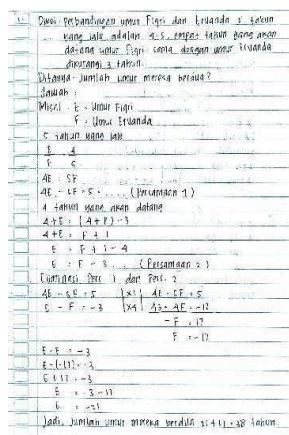 Perbandingan umur Fiqri dan Ervanda 5 tahun
yang lalu adalah 4:5, empat tahun yang akan
datang umur Fiqri sama dengan umur Ervanda
dikurangi 3 tahun.
Ditanya: Jumlah umur mereka berdua?
Jawab:
Misal: E = Umur Fiqri
F = Umur Ervanda
5 tahun yang lalu
E 4
F 5
4E = 5F
4E - 5F = 5 ... (Persamaan 1)
4 tahun yang akan datang
4+E = (4+F)-3
4+E = F+1
E = F+1-4
E = F-3 ... (Persamaan 2)
Eliminasi Pers 1 dan Pers. 2
4E - 5F = 5 |x1| 4E - 5F = 5
E - F = -3 |x4| 4E - 4F = -12
-F = 17
F = -17
E-F = -3
E-(-17) = -3
E+17 = -3
E = -3-17
E = -21
Jadi, Jumlah umur mereka berdua 38 tahun